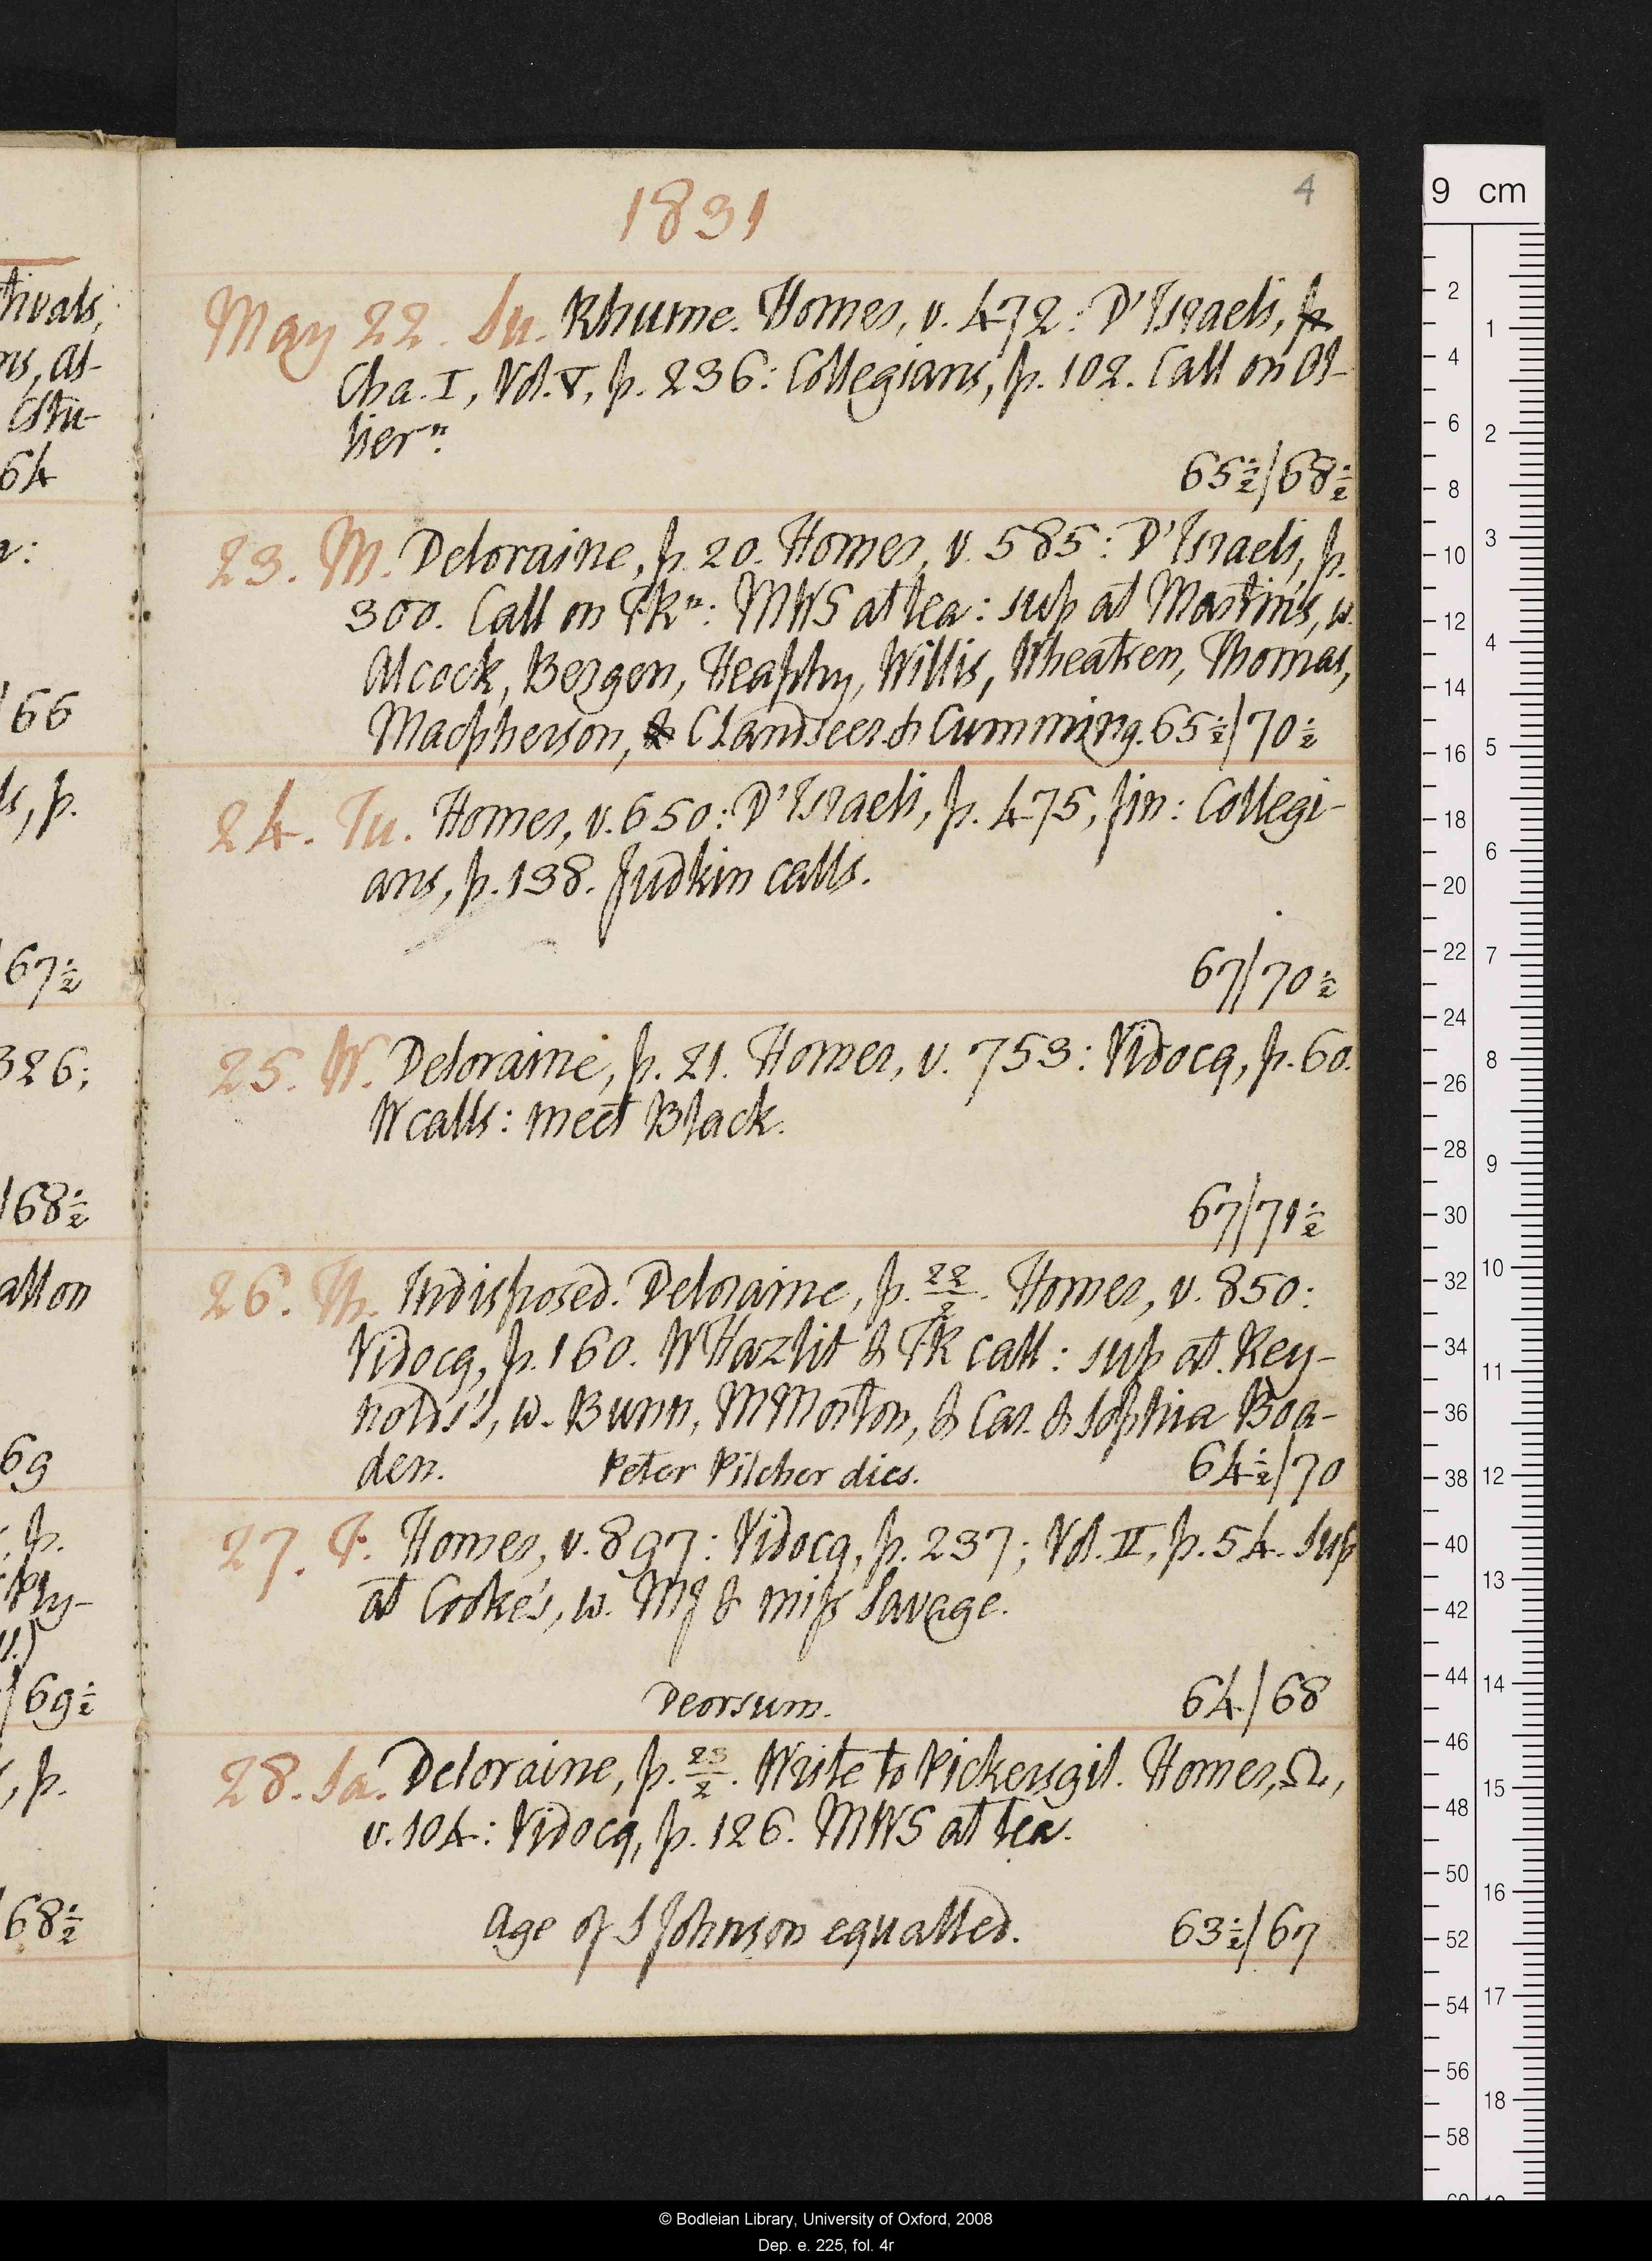 1831
4
May 22. Su. Rhume. Homer, v. 472: D'Israeli, p
Cha. I, Vol. V, p. 236: Collegians, p. 102. Call on Ol-
lier n.
65½/68½
23. M. Deloraine, p. 20. Homer, v. 585: D'Israeli, p.
300. Call on FK n: MWS at tea: sup at Martin's, w.
Alcock, Bergen, Heaphy, Willis, Wheatsen, Thomas,
Macpherson, & C Landseer & Cumming. 65½/70½
24. Tu. Homer, v. 650: D'Israeli, p. 475, fin: Collegi-
ans, p. 138. Judkin calls.
67/70½
25. W. Deloraine, p. 21. Homer, v. 753: Vidocq, p. 60.
W calls: meet Black.
67/71½
26. Th. Indisposed. Deloraine, p. 22/2. Homer, v. 850:
Vidocq, p. 160. W Hazlit & FK call: sup at Rey-
nolds's, w. Bunn, M Morton, & Car. & Sophia Boa-
den. Peter Pilcher dies. 64½/70
27. F. Homer, v. 897: Vidocq, p. 237; Vol. II, p. 54. Sup
at Cooke's, w. MJ & miss Savage.
Deorsum. 64/68
28. Sa. Deloraine, p. 23/2. Write to Pickersgil. Homer, Ω,
v. 104: Vidocq, p. 126. MWS at tea.
Age of S Johnson equalled. 63½/67
tivals,
ns, al-
Cstu-
64
a:
/66
ls, p.
/67½
326:
/68½
all on
69
, p.
Phy-
/69½
, p.
68½
9 cm
2
4
6
8
10
12
14
16
18
20
22
24
26
28
30
32
34
36
38
40
42
44
46
48
50
52
54
56
58
1
2
3
4
5
6
7
8
9
10
11
12
13
14
15
16
17
18
© Bodleian Library, University of Oxford, 2008
Dep. e. 225, fol. 4r